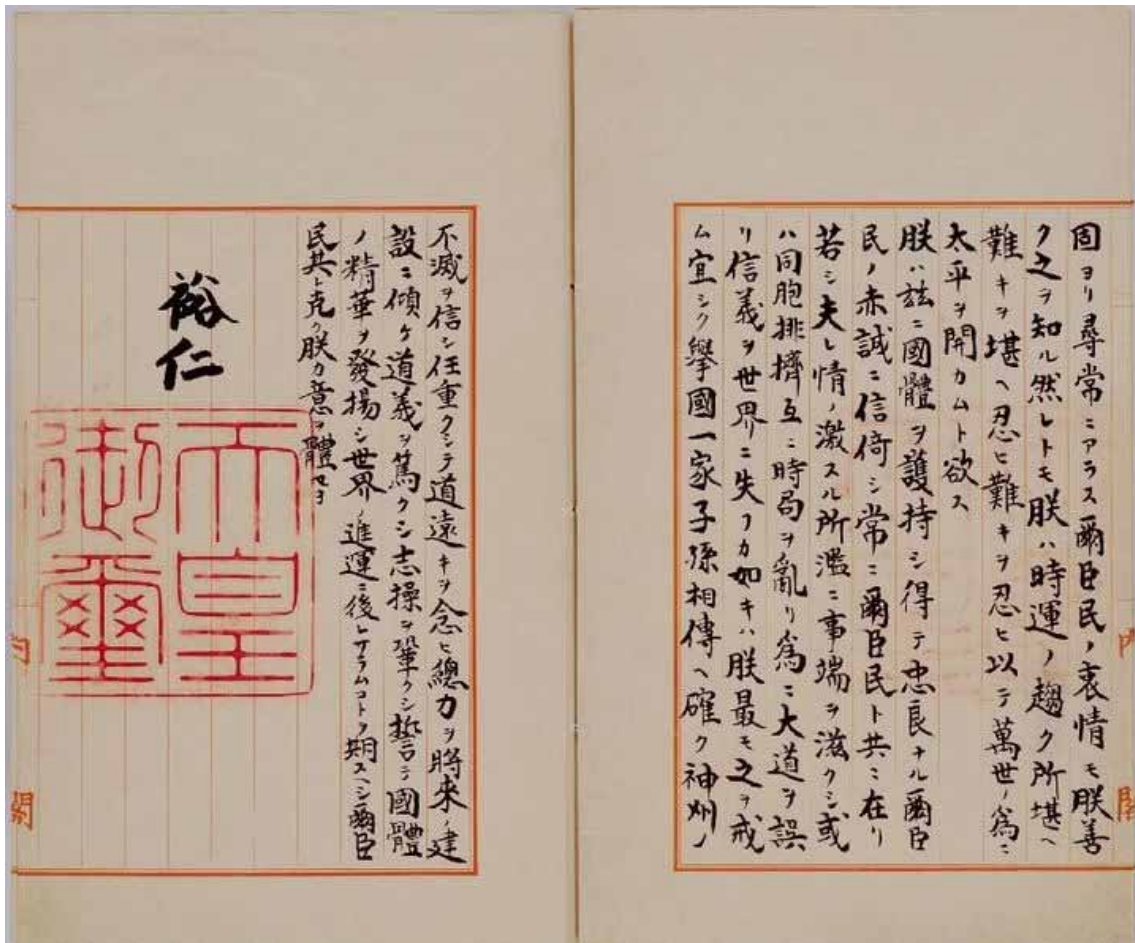 固ヨリ尋常ニアラス爾臣民ノ衷情モ朕善
ク之ヲ知ル然レトモ朕ハ時運ノ趨ク所堪ヘ
難キヲ堪ヘ忍ヒ難キヲ忍ヒ以テ萬世ノ爲ニ
太平ヲ開カムト欲ス
朕ハ茲ニ國體ヲ護持シ得テ忠良ナル爾臣
民ノ赤誠ニ信倚シ常ニ爾臣民ト共ニ在リ
若シ夫レ情ノ激スル所濫ニ事端ヲ滋クシ或
ハ同胞排擠互ニ時局ヲ亂リ爲ニ大道ヲ誤
リ信義ヲ世界ニ失フカ如キハ朕最モ之ヲ戒
ム宜シク擧國一家子孫相傳ヘ確ク神州ノ
不滅ヲ信シ任重クシテ道遠キヲ念ヒ總力ヲ將來ノ建
設ニ傾ケ道義ヲ篤クシ志操ヲ鞏クシ誓テ國體
ノ精華ヲ發揚シ世界ノ進運ニ後レサラムコトヲ期スヘシ爾臣
民其レ克ク朕カ意ヲ體セヨ
裕仁
天皇
御璽
内閣